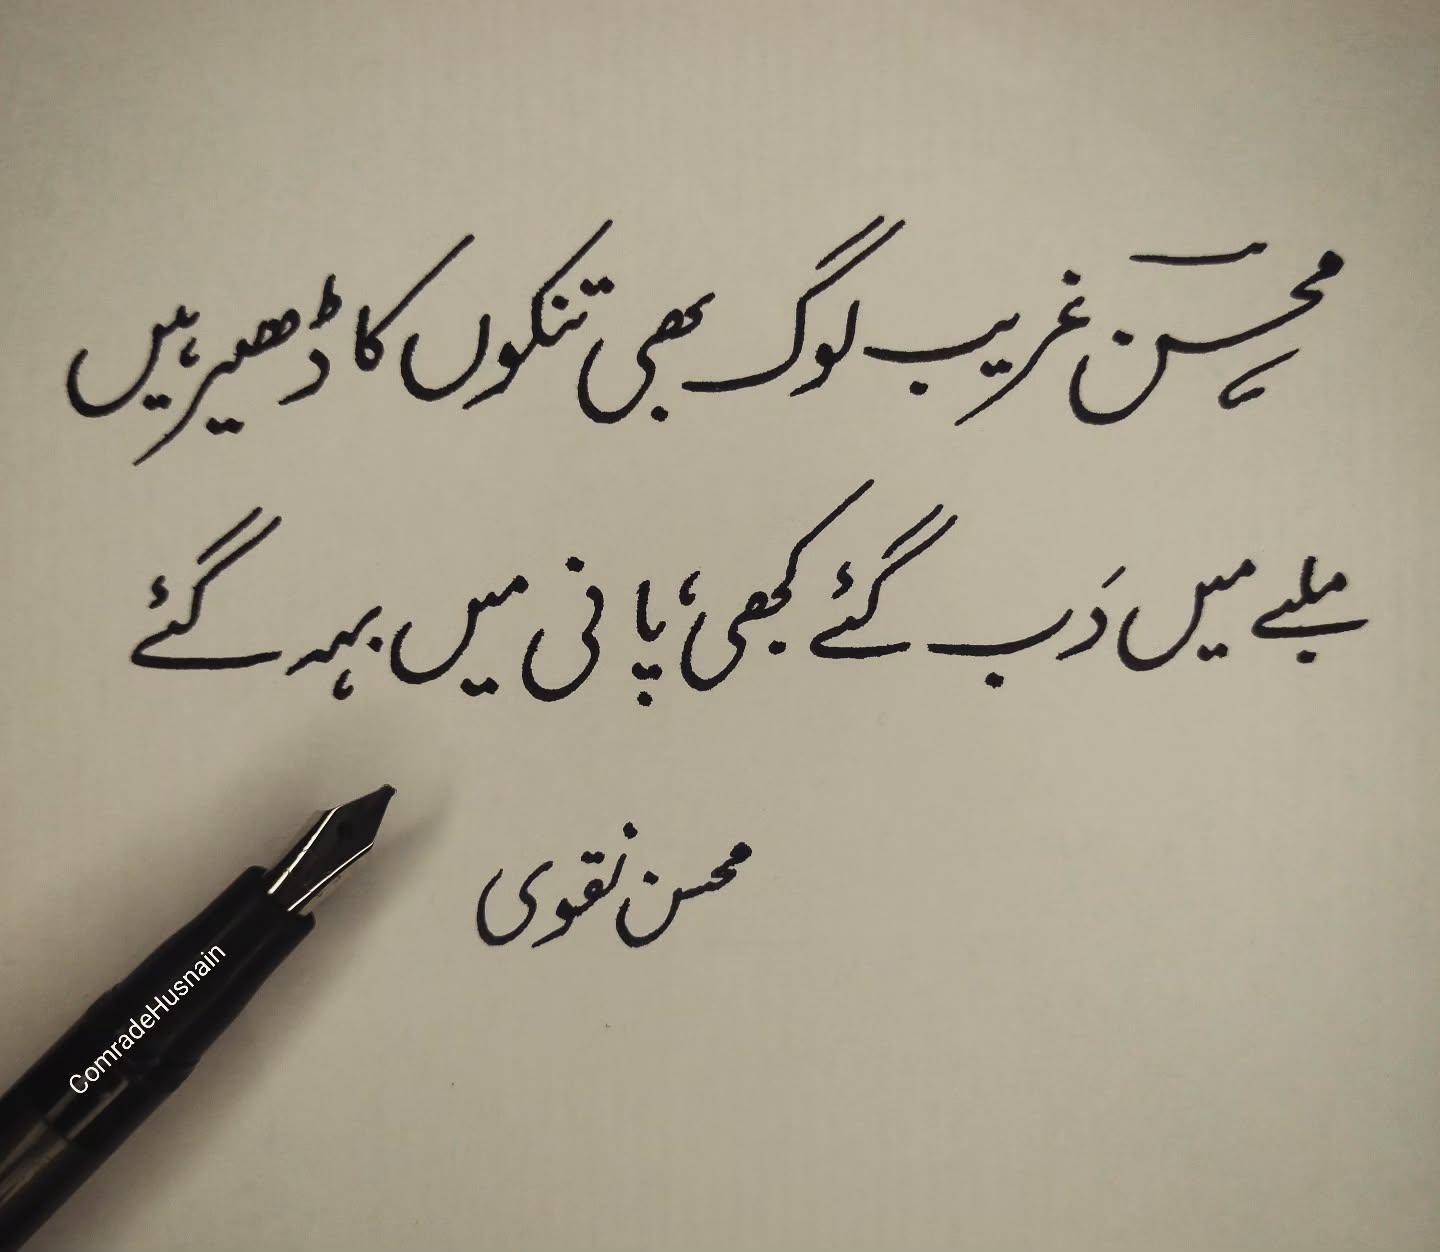 محسنؔ غریب لوگ بھی تنکوں کا ڈھیر ہیں
ملبے میں دَب گئے کبھی، پانی میں بہہ گئے
محسن نقوی
ComradeHusnain